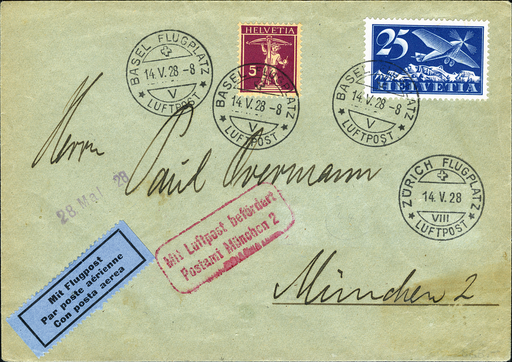 BASEL FLUGPLATZ
14.V.28-8
V
LUFTPOST
HELVETIA
5
BASEL FLUGPLATZ
14.V.28-8
V
LUFTPOST
25
HELVETIA
BASEL FLUGPLATZ
14.V.28-8
V
LUFTPOST
Herrn
Paul Overmann
28 Mai 28
ZÜRICH FLUGPLATZ
14.V.28
VIII
LUFTPOST
Mit Luftpost befördert
Postamt München 2
Mit Flugpost
Par poste aérienne
Con posta aerea
München 2